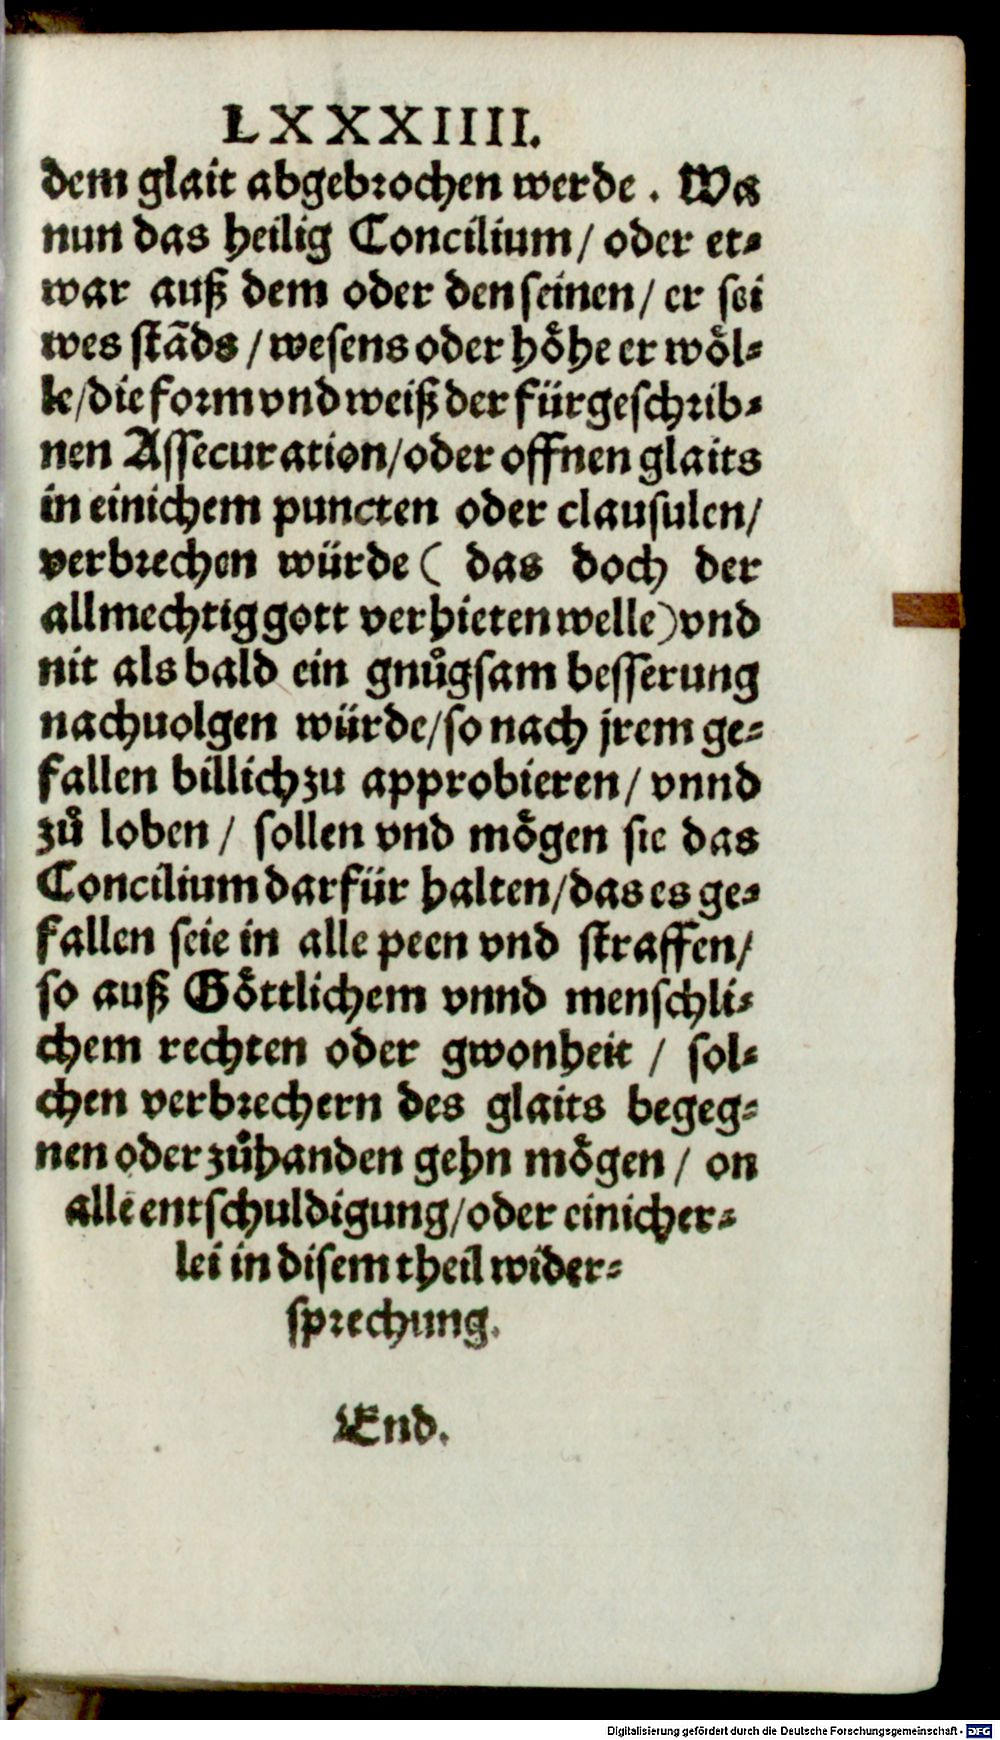 LXXXIIII.
dem glait abgebrochen werde. Wa
nun das heilig Concilium / oder et-
war auß dem oder den seinen / er sei
wes stãds / wesens oder hoͤhe er woͤl-
le / die form vnd weiß der fürgeschrib-
nen Assecuration / oder offnen glaits
in einichem puncten oder clausulen /
verbrechen würde ( das doch der
allmechtig gott verbieten welle ) vnd
nit als bald ein gnuͦgsam besserung
nachuolgen würde / so nach jrem ge-
fallen billich zu approbieren / vnnd
zuͦ loben / sollen vnd moͤgen sie das
Concilium darfür halten / das es ge-
fallen seie in alle peen vnd straffen /
so auß Goͤttlichem vnnd menschli-
chem rechten oder gwonheit / sol-
chen verbrechern des glaits begeg-
nen oder zuͦhanden gehn moͤgen / on
alle entschuldigung / oder einicher-
lei in disem theil wider-
sprechung.
End.
Digitalisierung gefördert durch die Deutsche Forschungsgemeinschaft - DFG